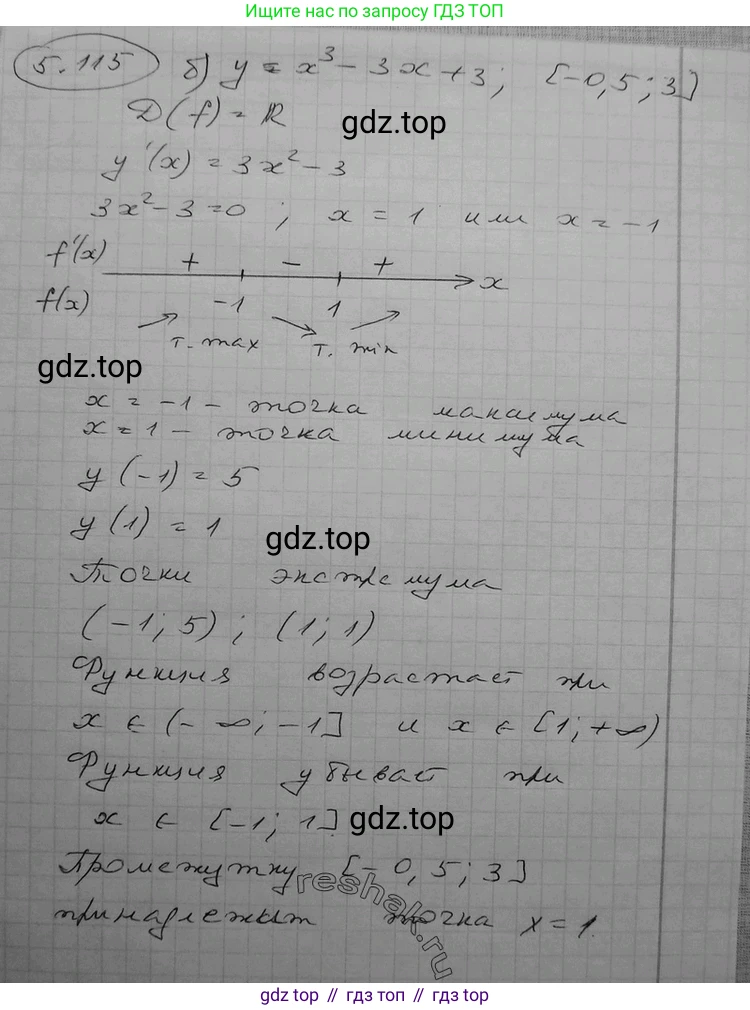 Ищите нас по запросу ГДЗ ТОП
5.115 б) y = x³ - 3x + 3; [-0,5; 3]
D(f) = R
gdz.top
y'(x) = 3x² - 3
3x² - 3 = 0; x = 1 или x = -1
f'(x) + - + x
f(x) -1 1
т. max т. min
gdz.top
x = -1 - точка максимума
x = 1 - точка минимума
y(-1) = 5
y(1) = 1
gdz.top
Точки экстремума
(-1; 5); (1; 1)
Функция возрастает при
x ∈ (-∞; -1] и x ∈ [1; +∞)
Функция убывает при
x ∈ [-1; 1].
gdz.top
Промежутку [-0,5; 3]
принадлежит точка x = 1.
reshak.ru
gdz top // гдз топ // gdz top